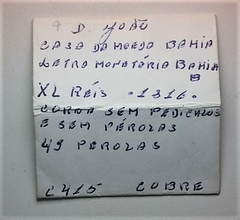 D. JOÃO
CASA DA MOEDA BAHIA
LETRA MONETÁRIA BAHIA
B
XL REÍS .1816.
COROA SEM PEDICALOS
E SEM PÉROLAS
49 PEROLAS
C415 COBRE